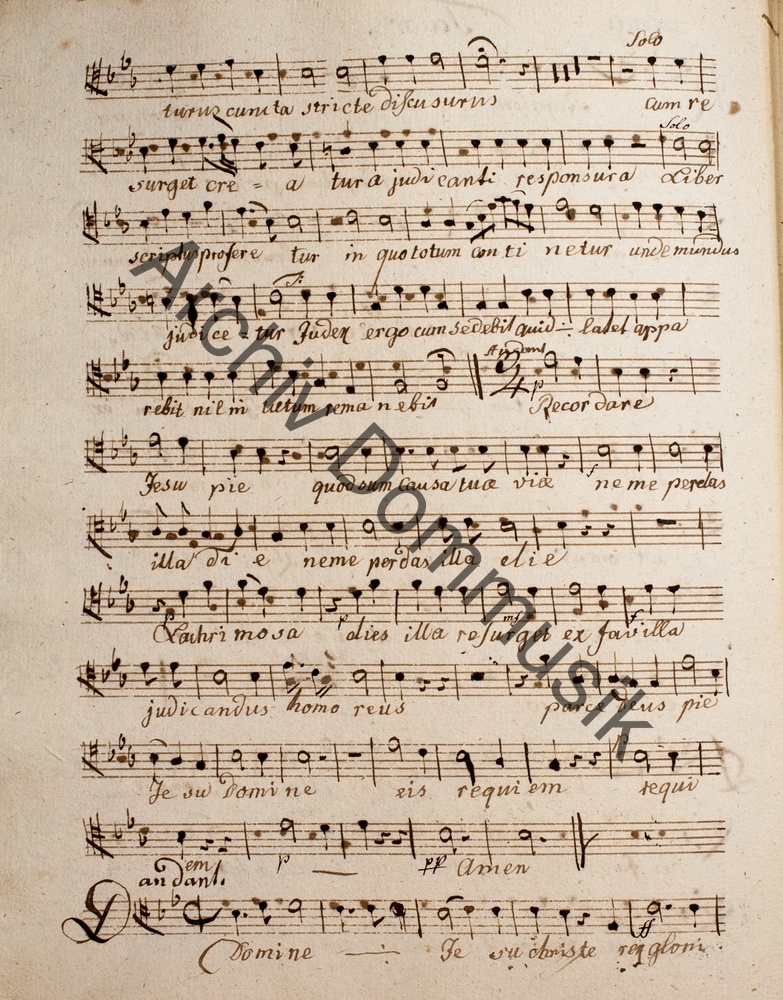 Solo
turus cuncta stricte discusurus cum re
Solo
surget cre = a tura judicanti responsura Liber
scriptus profere tur in quo totum con ti netur unde mundus
judice = tur Judex ergo cum sedebit quid latet appa
Andant
rebit nil in ultum remanebit Recordare
2/4 p
Jesu pie quod sum causa tuæ viæ ne me perdas
illa di e ne me perdas illa die
p p mf f
Lachrimosa dies illa resurget ex favilla
judicandus homo reus parce deus pie
Je su Domi ne eis requiem
em p pp Amen
andant.
ff
Domine Je su christe rex glori
Archiv Dommusik